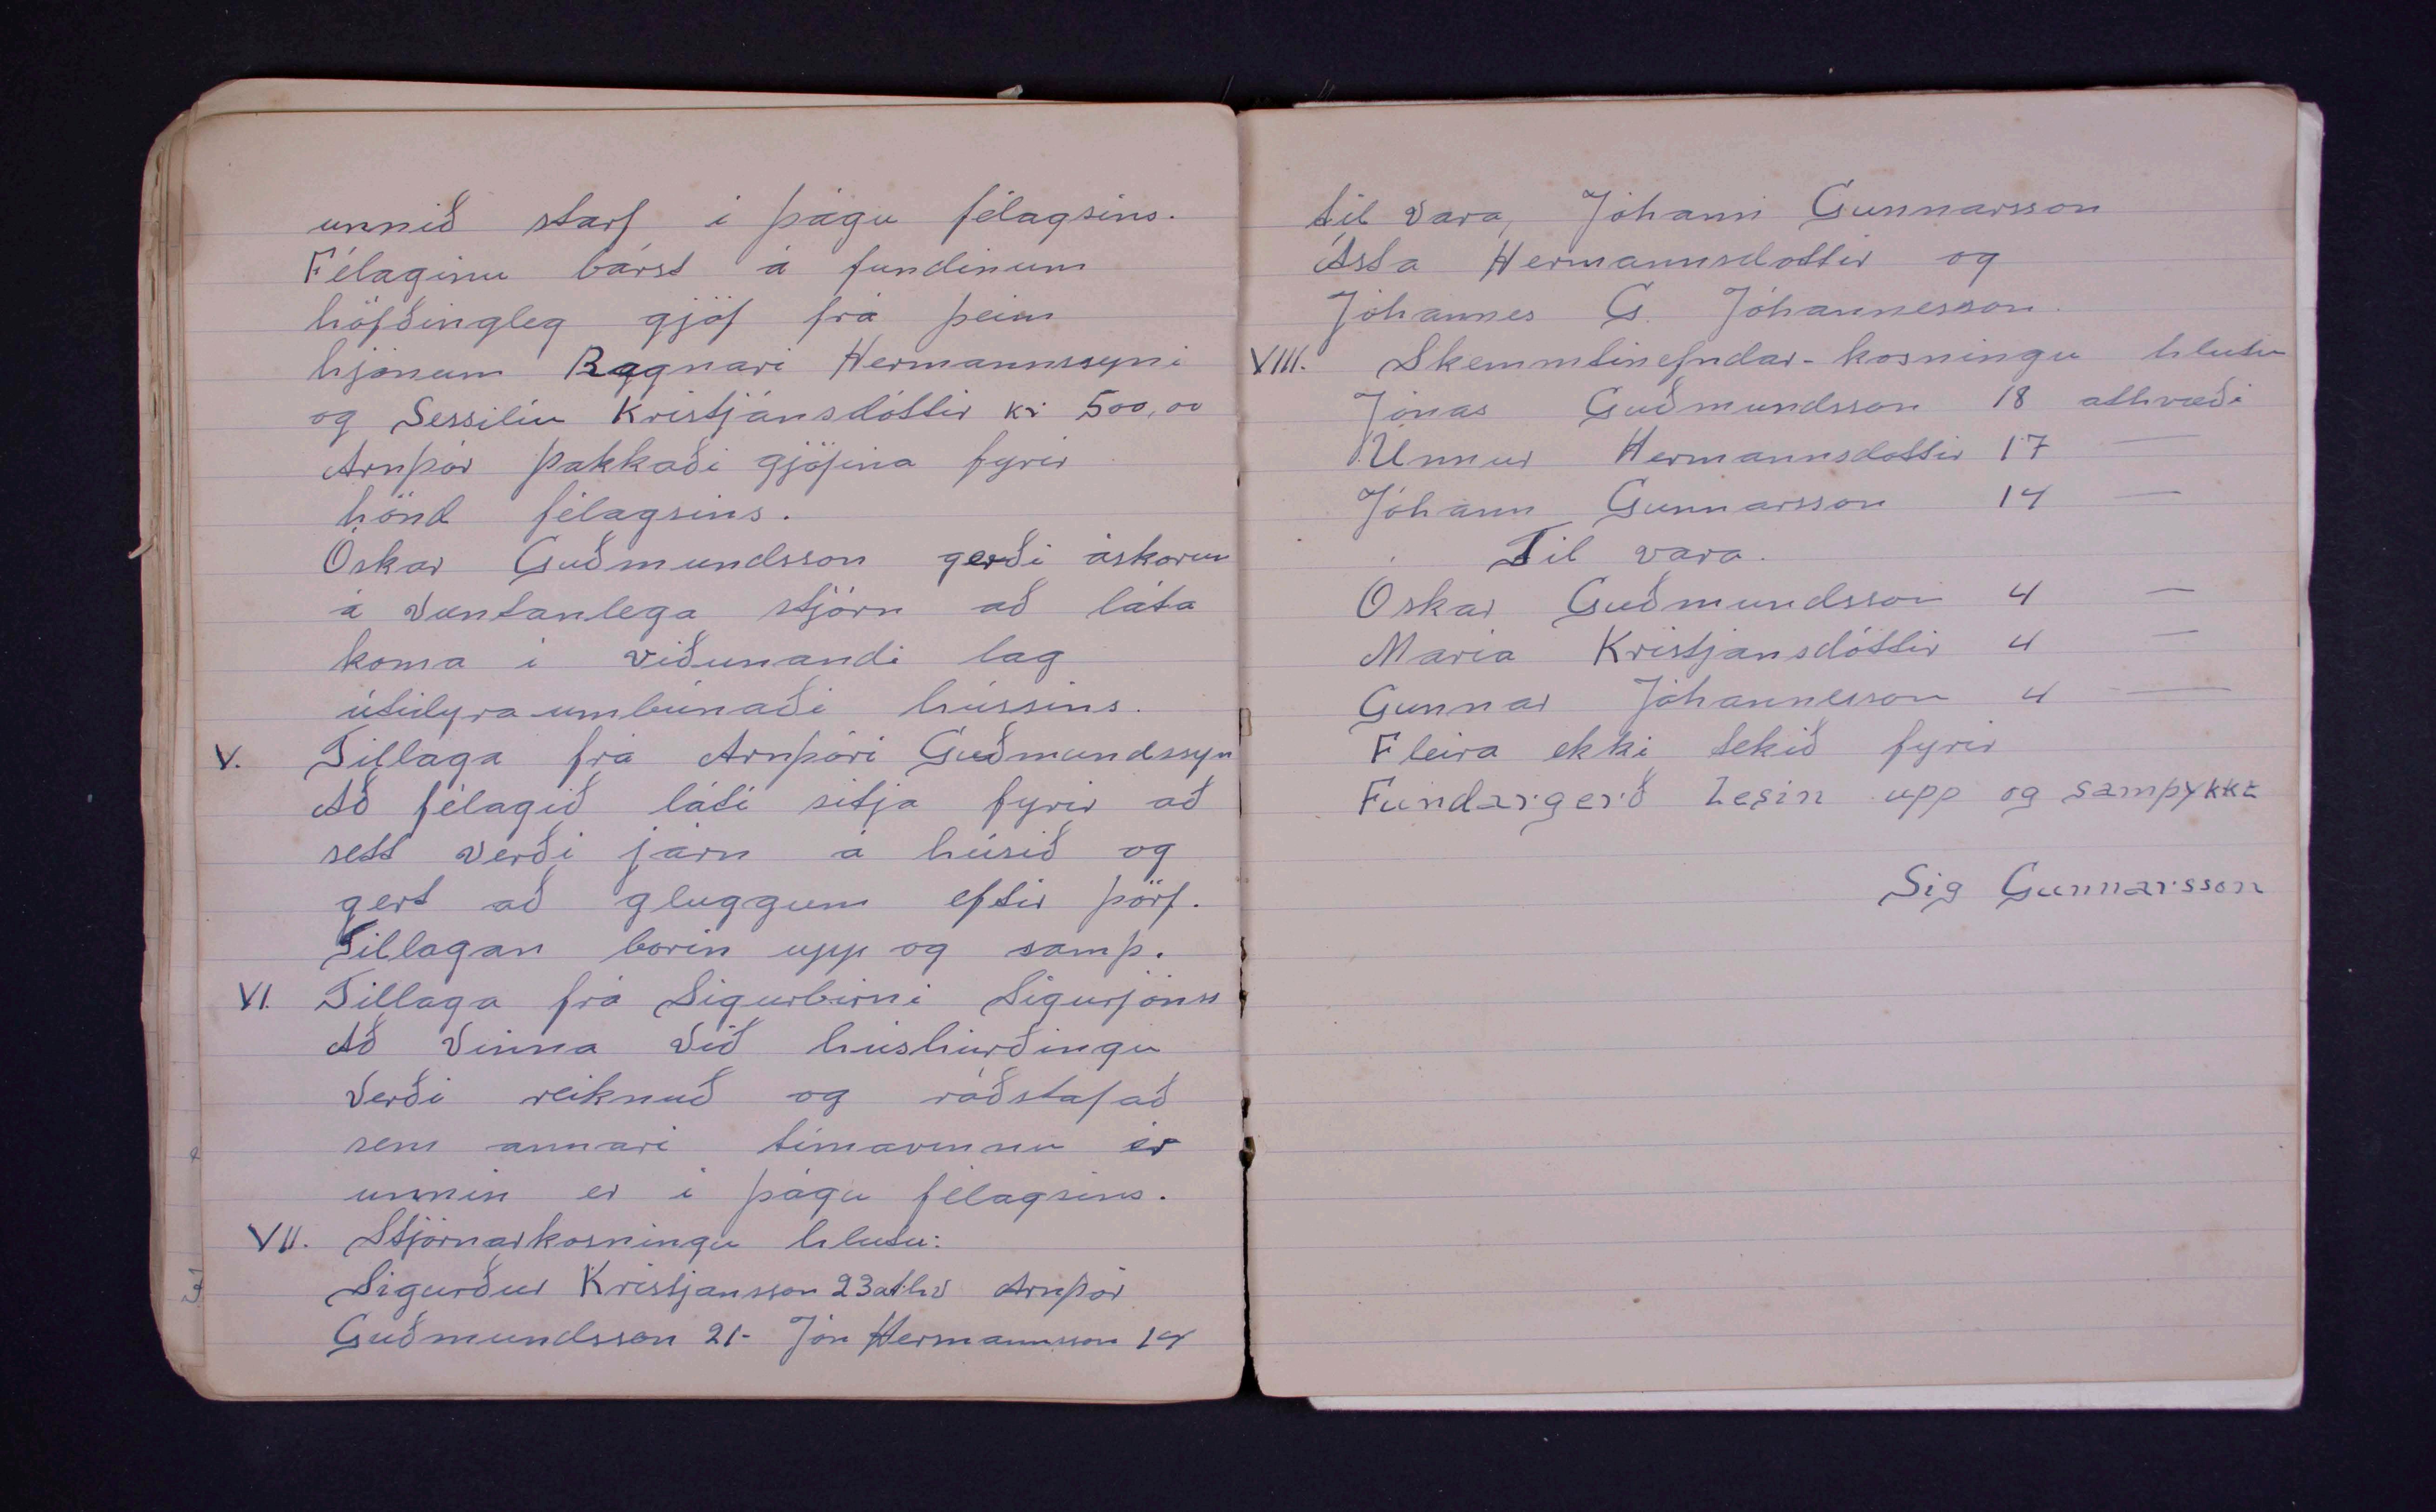 unnið starf í þágu félagsins.
Félaginu bárst á fundinum
höfðingleg gjöf frá þeim
hjónum Ragnari Hermannssyni
og Sessilíu Kristjánsdóttir kr 500,00
Arnþór þakkaði gjöfina fyrir
hönd félagsins.
Óskar Guðmundsson gerði áskorun
á væntanlega stjórn að láta
koma í viðunandi lag
útidyra-umbúnaði hússins.
V. Tillaga frá Arnþóri Guðmundssyn
Að félagið láti sitja fyrir að
sett verði járn á húsið og
gert að gluggum eftir þörf.
Tillagan borin upp og samþ.
VI. Tillaga frá Sigurbirni Sigurjónss
Að vinna við húshirðingu
verði reiknuð og ráðstafað
sem annari tímavinnu er
unnin er í þágu félagsins.
VII. Stjórnarkosningu hlutu:
Sigurður Kristjansson 23 athv Arnþór
Guðmundsson 21- Jón Hermannsson 14
til vara, Jóhann Gunnarsson
Ásta Hermannsdottir og
Jóhannes G. Jóhannesson.
VIII. Skemmtinefndar-kosningu hlutu
Jónas Guðmundsson 18 athvæði
Unnur Hermannsdottir 17 —
Jóhann Gunnarsson 14 —
Til vara.
Óskar Guðmundsson 4 —
María Kristjansdóttir 4 —
Gunnar Jóhannesson 4 —
Fleira ekki tekið fyrir
Fundargerð Lesin upp og samþykkt
Sig Gunnarsson